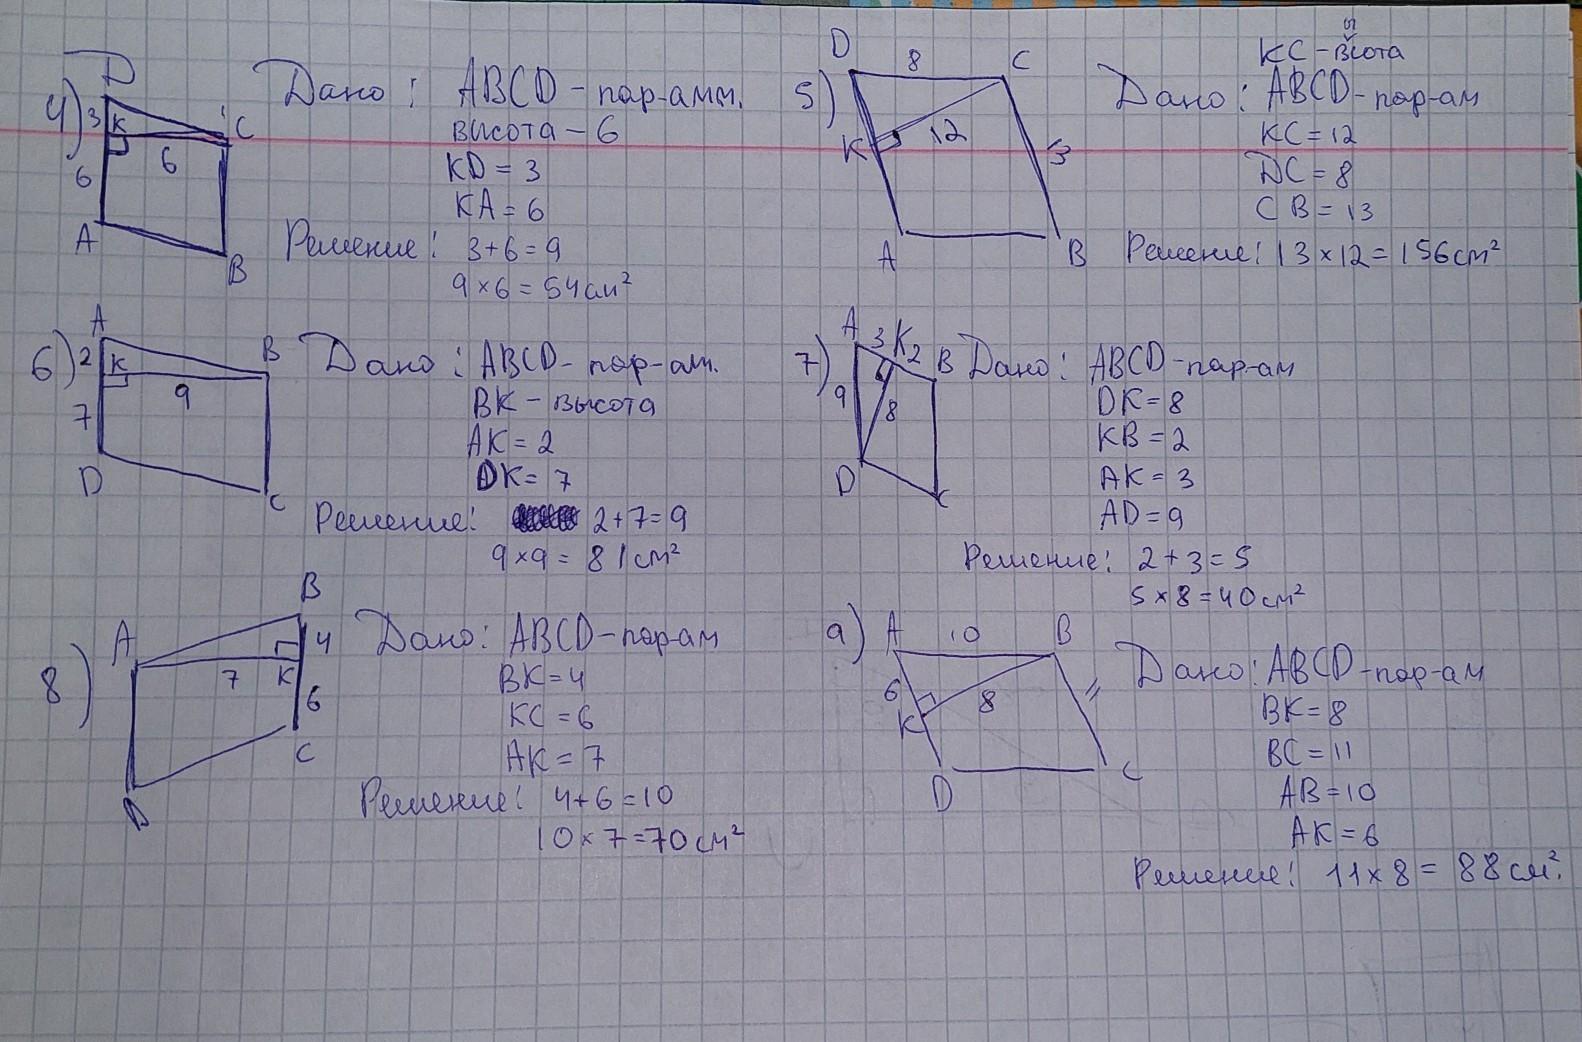 4)
D
3
K
C
6
6
A
B
Дано: ABCD - пар-амм.
высота - 6
KD = 3
KA = 6
Решение: 3+6=9
9×6=54см²
5)
D
8
C
K
12
13
A
B
KC - высота
Дано: ABCD - пар-ам
KC = 12
DC = 8
CB = 13
Решение: 13×12=156см²
6)
A
2
K
B
9
7
D
C
Дано: ABCD - пар-ам.
BK - высота
AK = 2
DK = 7
Решение: 2+7=9
9×9=81см²
7)
A
3
K
2
B
9
8
D
C
Дано: ABCD - пар-ам
DK = 8
KB = 2
AK = 3
AD = 9
Решение: 2+3=5
5×8=40см²
8)
B
A
4
7
K
6
C
D
Дано: ABCD - пар-ам
BK = 4
KC = 6
AK = 7
Решение: 4+6=10
10×7=70см²
9)
A
10
B
6
8
K
D
C
Дано: ABCD - пар-ам
BK = 8
BC = 11
AB = 10
AK = 6
Решение: 11×8=88см².